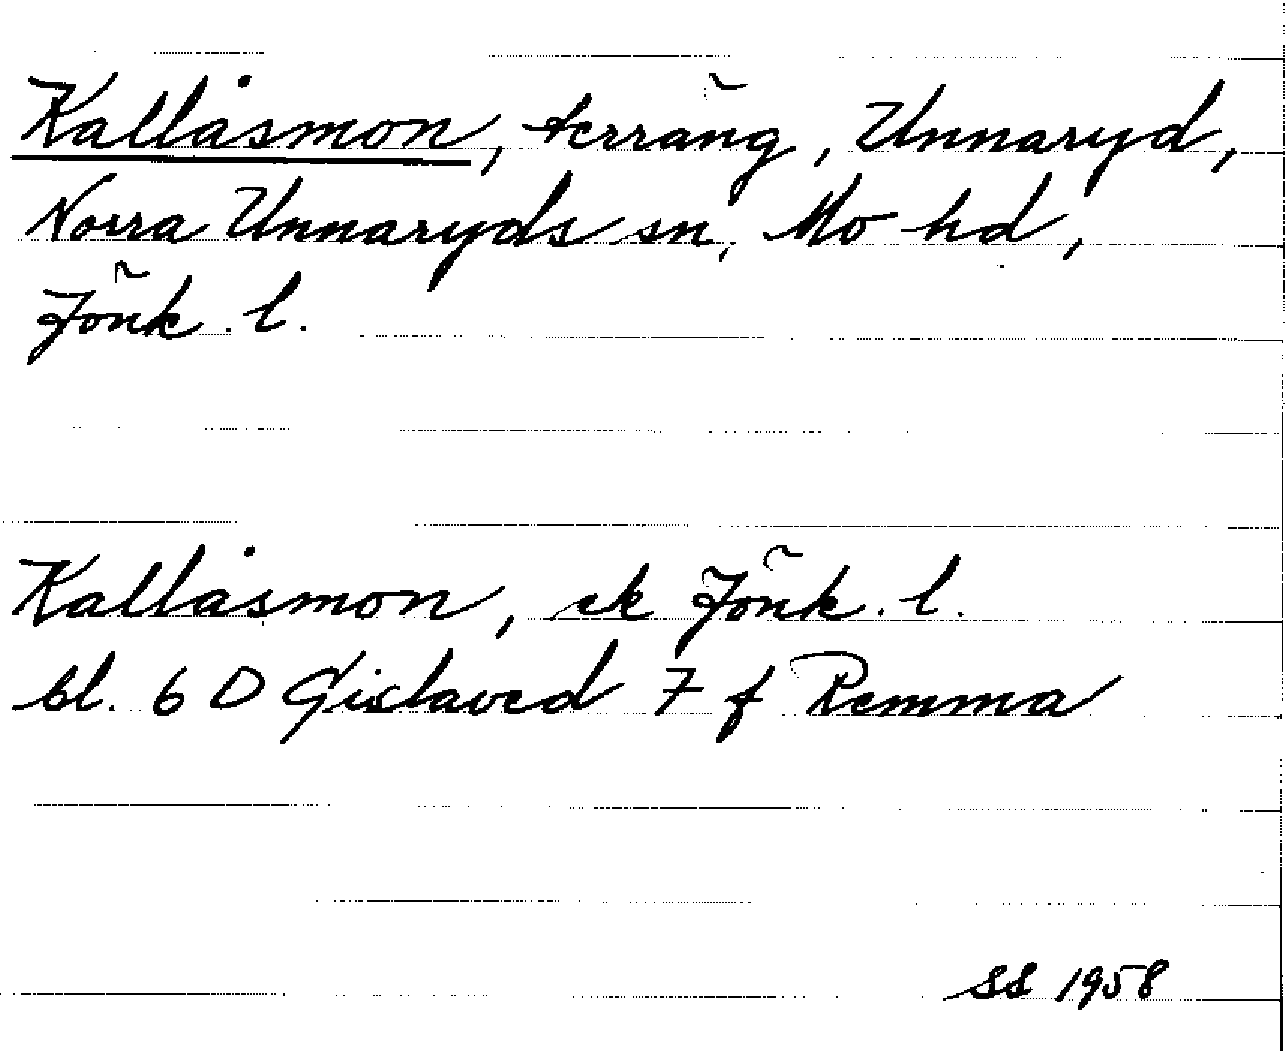 Kallåsmon, terräng, Unnaryd,
Norra Unnaryds sn, Mo hd,
Jönk. l.
Kallåsmon, ek Jönk. l.
bl. 6 D Gislaved 7 f Remma
SS 1958